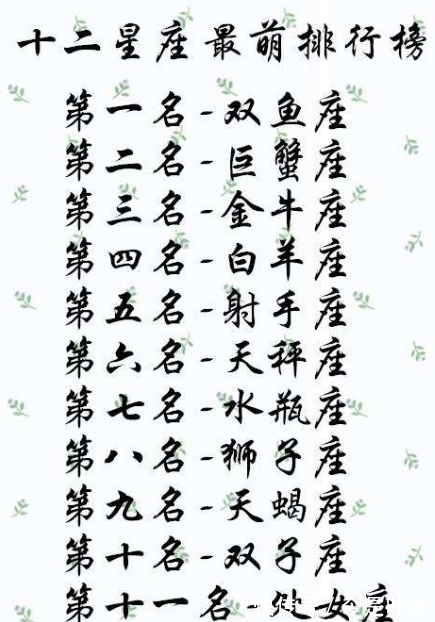 十二星座最萌排行榜
第一名-双鱼座
第二名-巨蟹座
第三名-金牛座
第四名-白羊座
第五名-射手座
第六名-天秤座
第七名-水瓶座
第八名-狮子座
第九名-天蝎座
第十名-双子座
第十一名-处女座